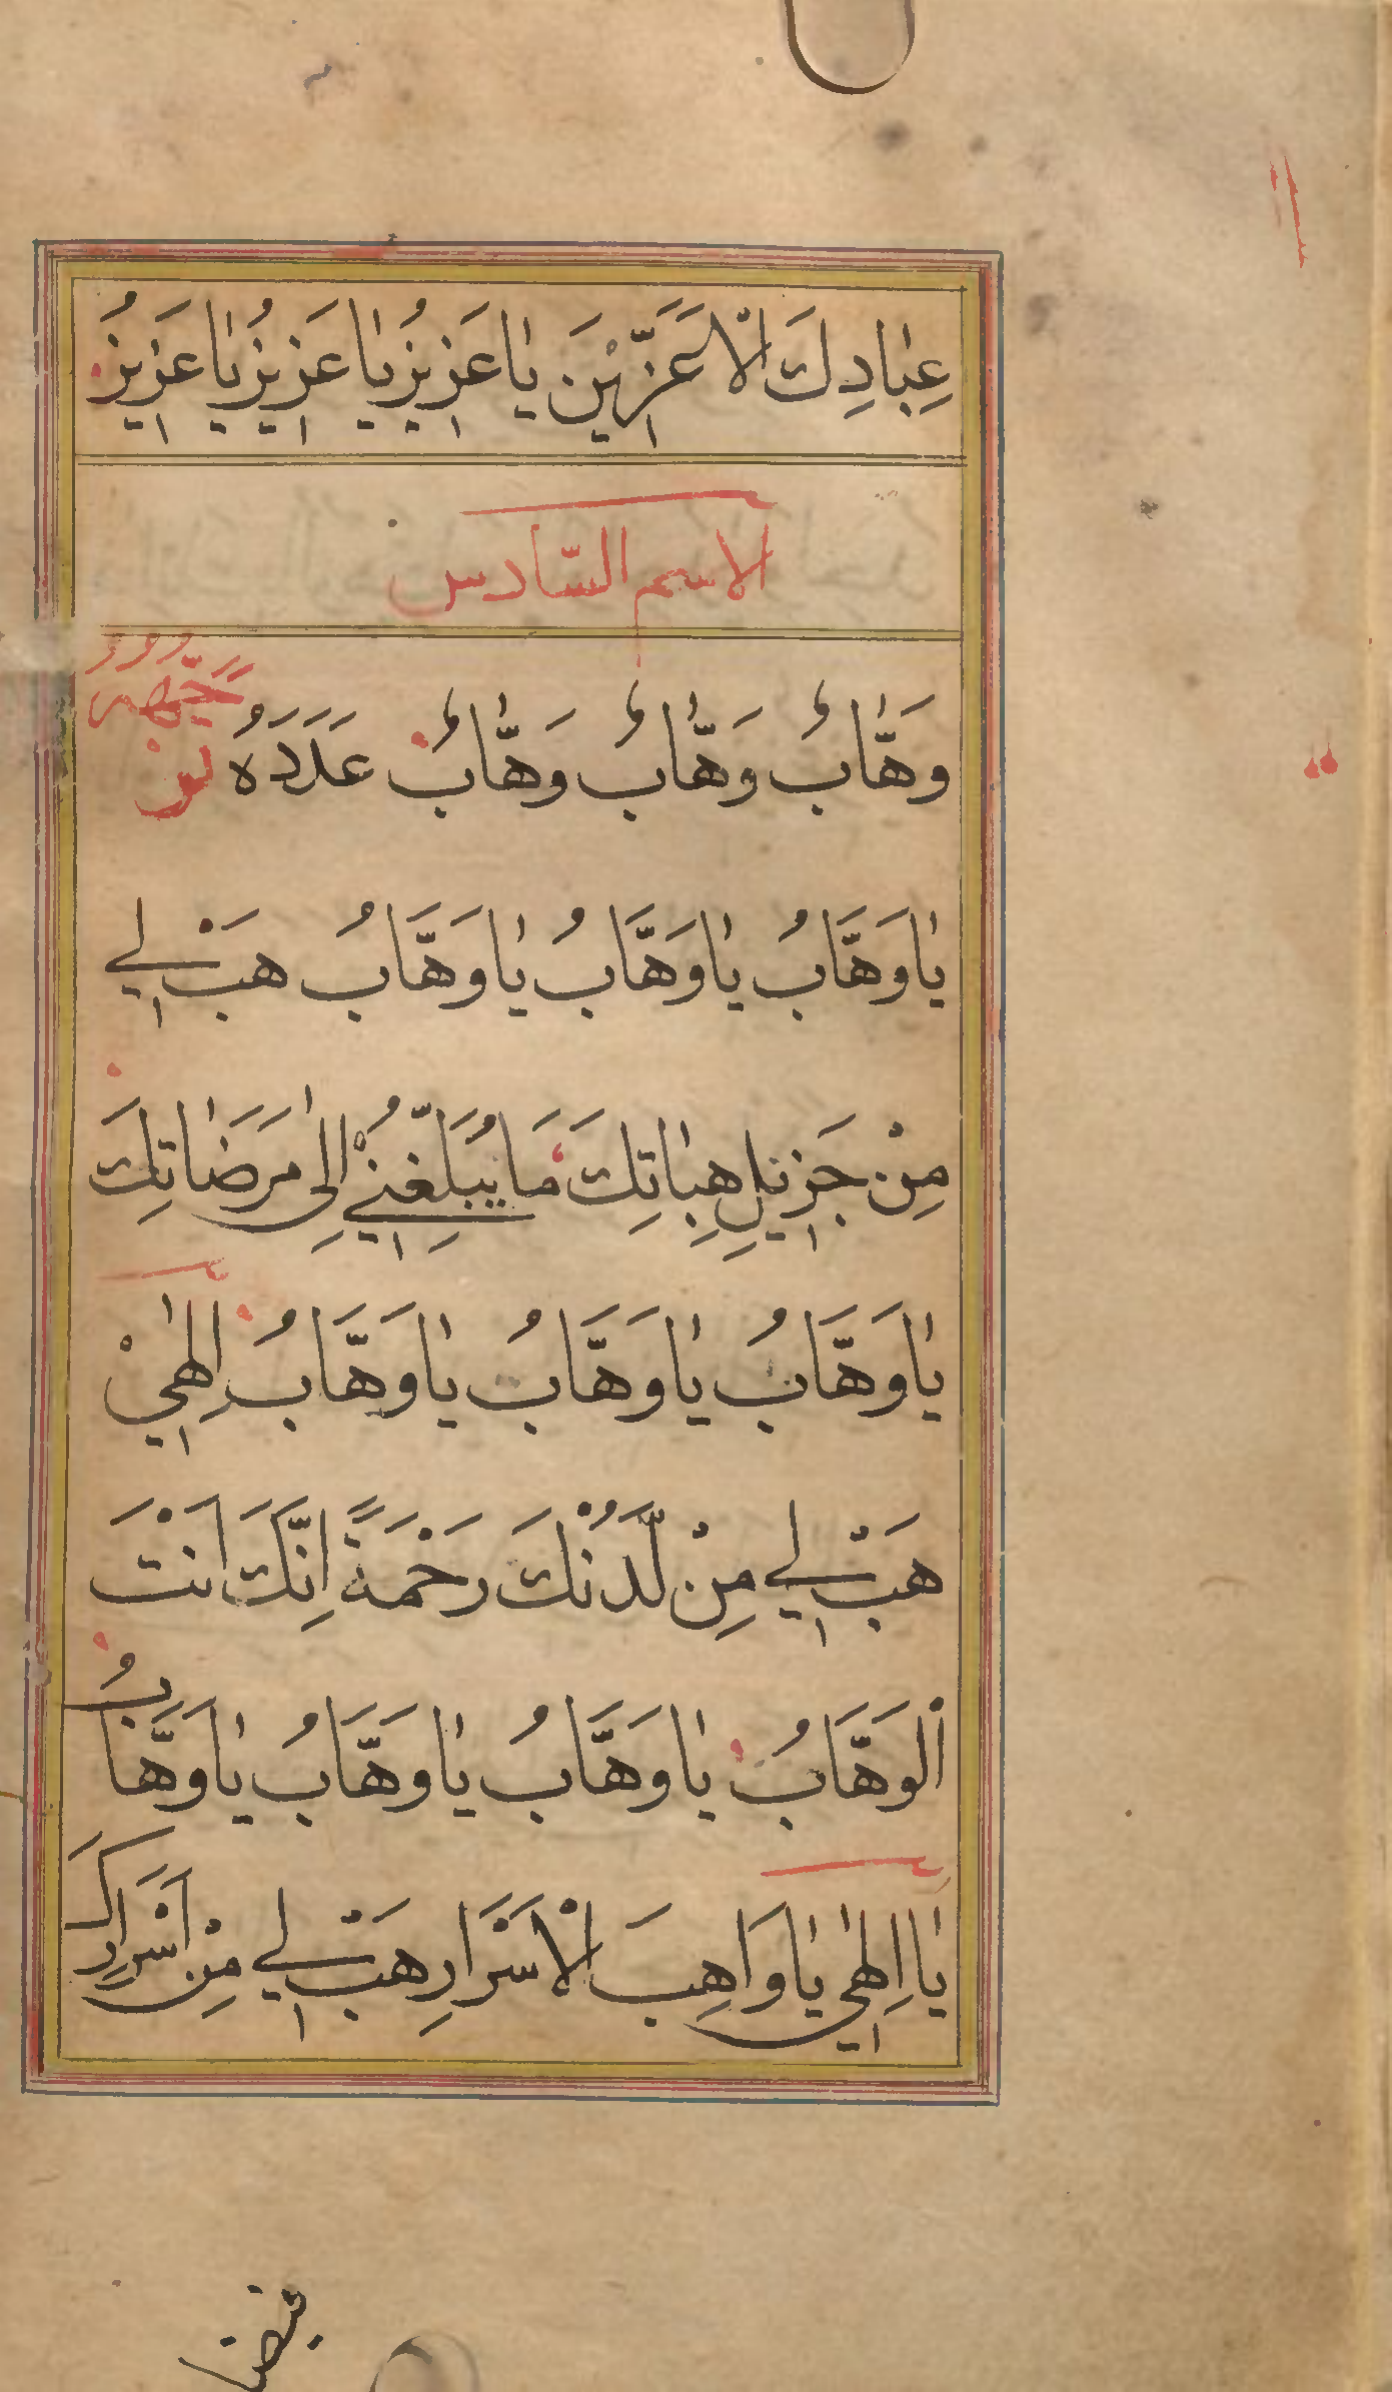 عِبَادِكَ الْأَعَزِّيْنَ يَا عَزِيزُ يَا عَزِيزُ يَا عَزِيزُ يَا عَزِيزُ
الاسم السّادس
وَهَّابٌ وَهَّابٌ وَهَّابٌ عَدَدَهُ
يَا وَهَّابُ يَا وَهَّابُ يَا وَهَّابُ هَبْ لِي
مِنْ جَزِيلِ هِبَاتِكَ مَا يُبَلِّغُنِيْ اِلَى مَرَضَاتِكَ
يَا وَهَّابُ يَا وَهَّابُ يَا وَهَّابُ اِلٰهِيْ
هَبْ لِي مِنْ لَّدُنْكَ رَحْمَةً اِنَّكَ اَنْتَ
الْوَهَّابُ يَا وَهَّابُ يَا وَهَّابُ يَا وَهَّابُ
يَا اِلٰهِي يَا وَاهِبَ الْاَسْرَارِ هَبْ لِي مِنْ اَسْرَارِكَ